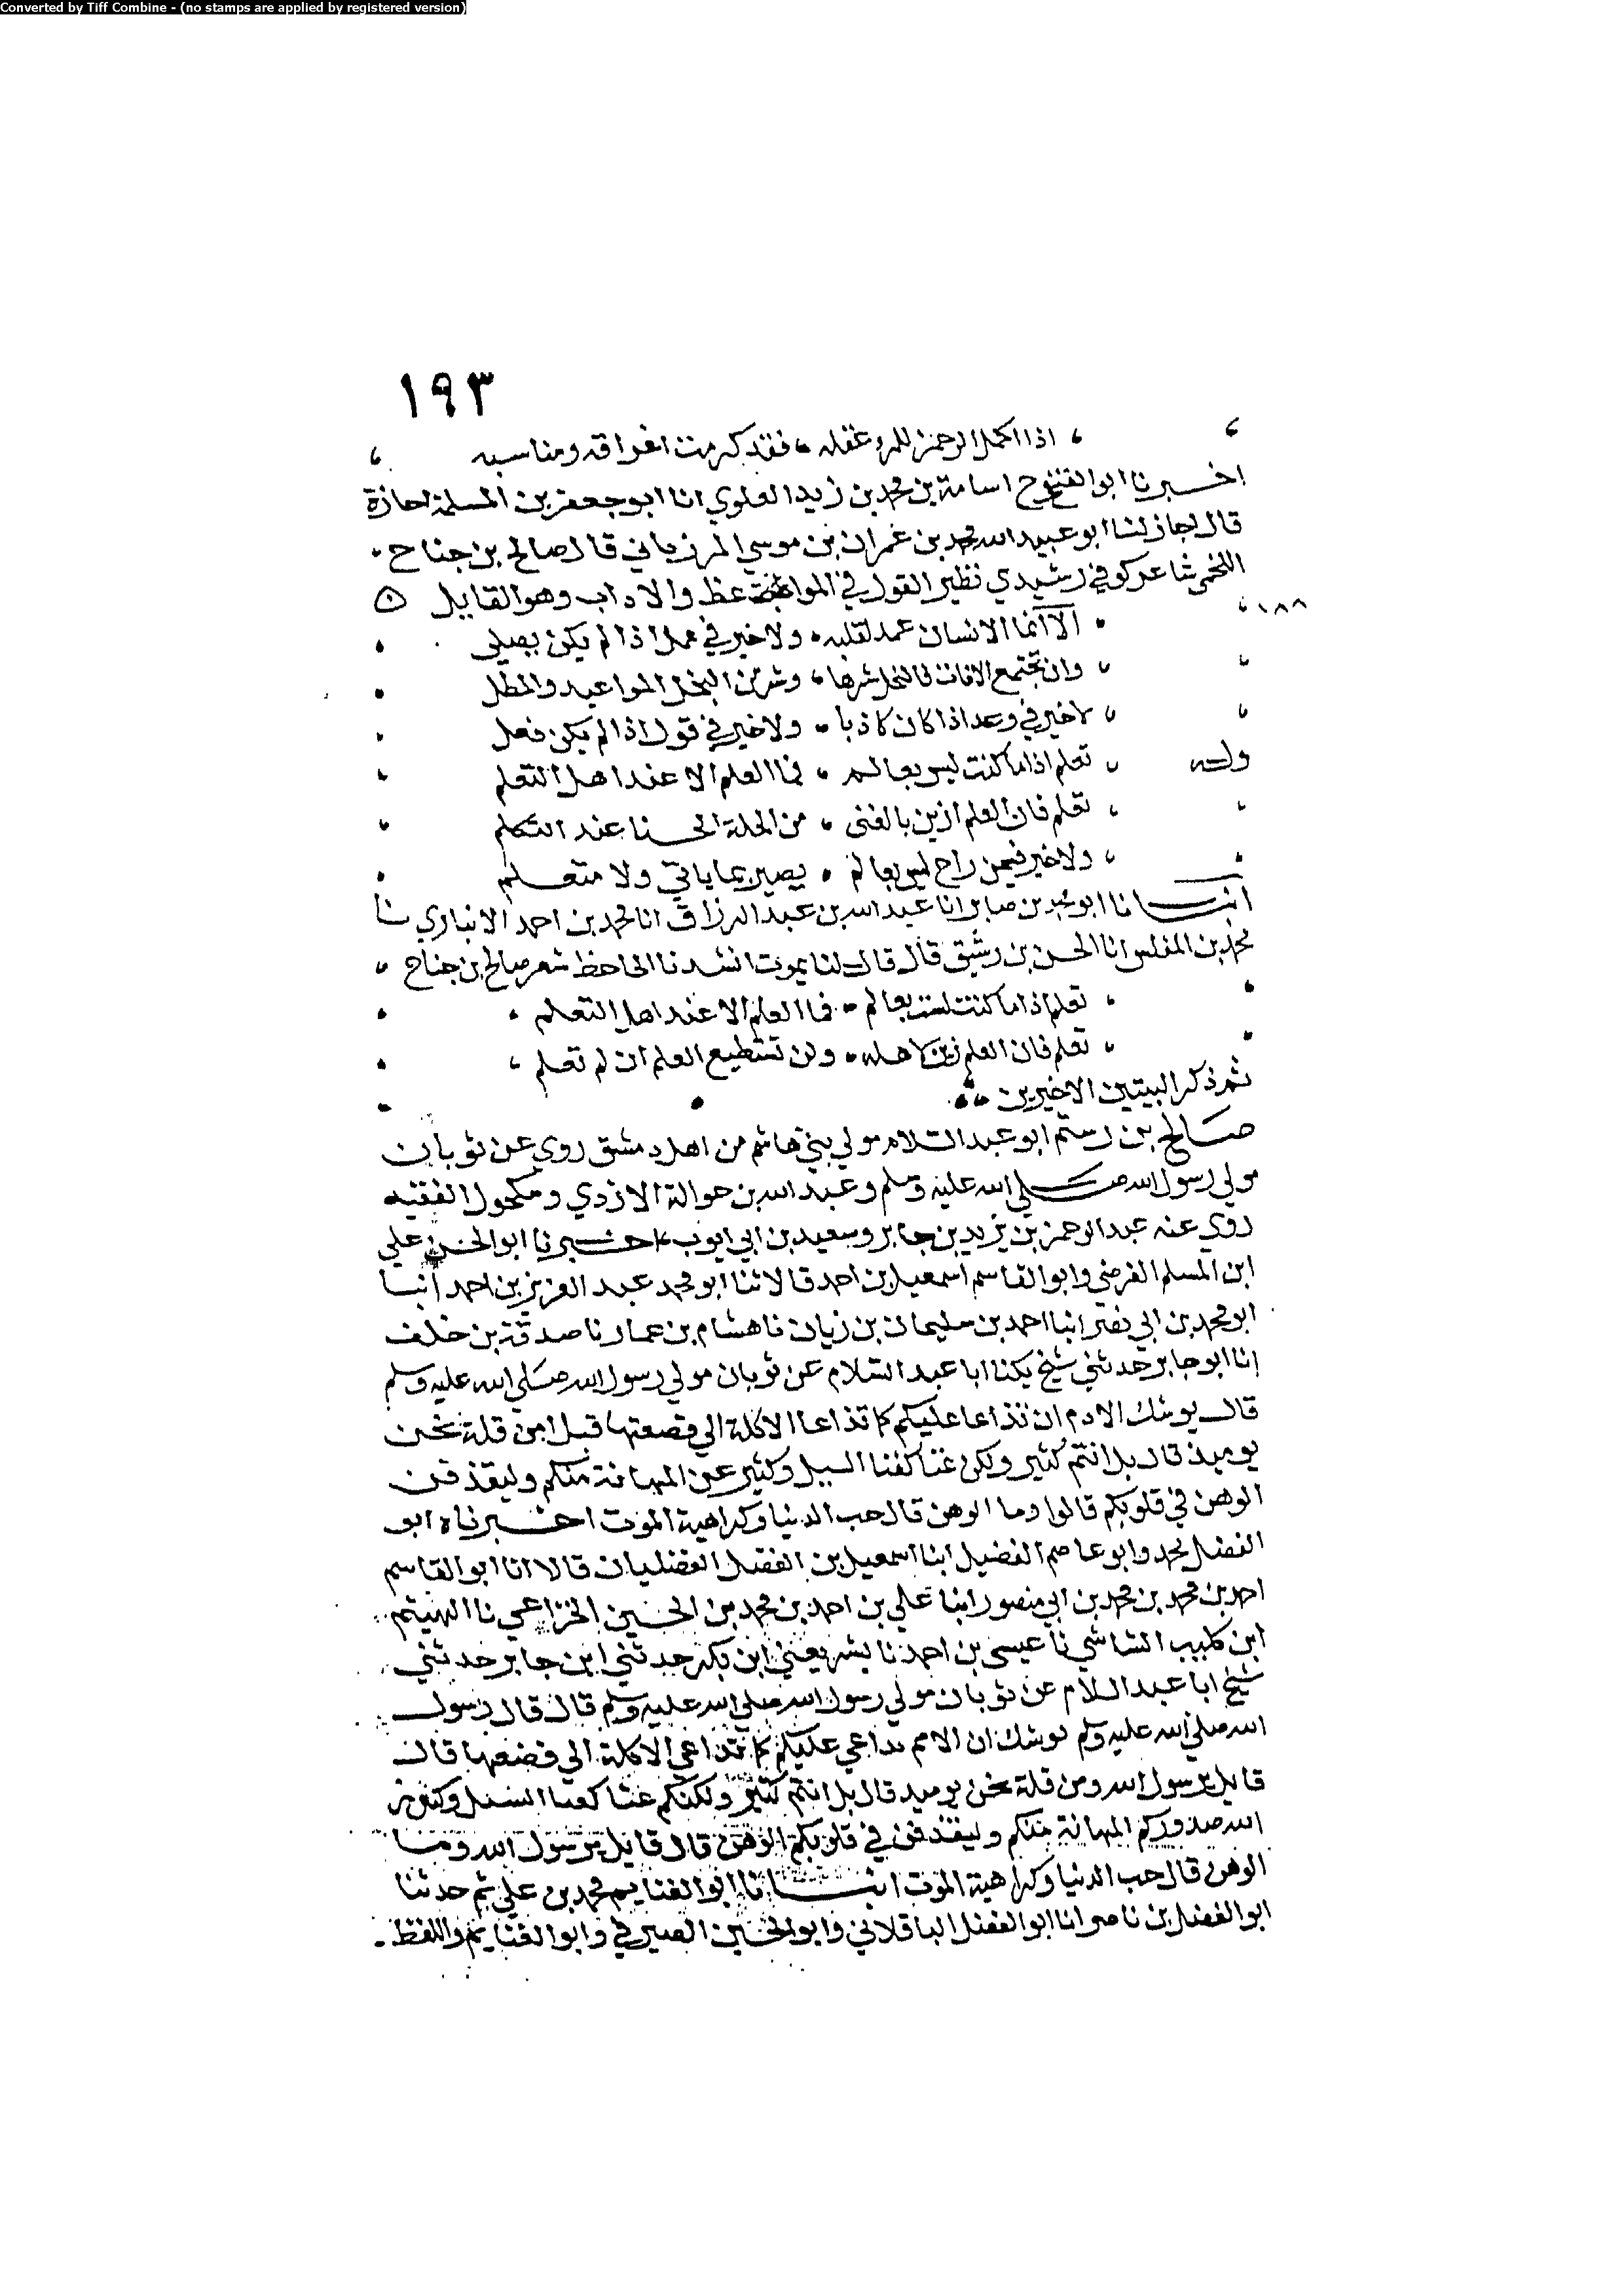 Converted by Tiff Combine - (no stamps are applied by registered version)
١٩٣
اذا اكمل الرحمن للمرء عقله فقد كرمت اعراقه ومناسبه
اخبرنا ابو الفتوح اسامة بن محمد بن زيد العلوي انا ابو جعفر بن المسلمة اجازة
قال اجاز لنا ابو عبيد الله محمد بن عمران بن موسي المرزباني قال صالح بن جناح
اللخمي شاعر كوفي رشيدي نظير القول في المواعظ والاداب وهو القايل
١٨٨
الا انما الانسان غمد لقلبه ولا خير في غمد اذا لم يكن نصل
وان تجتمع الافات فالبخل شرها وشر من البخل المواعيد والمطل
لاخير في وعد اذا كان كاذبا ولا خير في قول اذا لم يكن فعل
وله تعلم اذا ما كنت ليس بعالم فما العلم الا عند اهل التعلم
تعلم فان العلم ازين بالفتى من الحلة الحسنا عند التكلم
ولا خير فيمن راح ليس بعالم بصير بما ياتي ولا متعلم
انبانا ابو محمد بن صابر انا عبد الله بن عبد الرزاق انا محمد بن احمد الانباري نا
محمد بن المغلس انا الحسن بن رشيق قال قال لنا يموت انشدنا الجاحظ شعر صالح بن جناح
تعلم اذا ما كنت لست بعالم فما العلم الا عند اهل التعلم
تعلم فان العلم زين لاهله ولن تستطيع العلم ان لم تعلم
ثم ذكر البيتين الاخيرين
صالح بن رستم ابو عبد السلام مولي بني هاشم من اهل دمشق روي عن ثوبان
مولي رسول الله صلي الله عليه وسلم وعبد الله بن حوالة الازدي ومكحول الفقيه
روي عنه عبد الرحمن بن يزيد بن جابر وسعيد بن ابي ايوب اخبرنا ابو الحسن علي
ابن المسلم الفرضي وابو القاسم اسمعيل بن احمد قالا ثنا ابو محمد عبد العزيز بن احمد انبا
ابو محمد بن ابي نصر انبا احمد بن سليمان بن زبان نا هشام بن عمار نا صدقة بن خلف
انا ابو جابر حدثني شيخ يكنا ابا عبد السلام عن ثوبان مولي رسول الله صلي الله عليه وسلم
قال يوشك الامم ان تداعا عليكم كما تداعا الاكلة الي قصعتها قيل امن قلة نحن
يوميذ قال بل انتم كثير ولكن غثا كغثا السيل وكثير عن المهانة منكم وليقذفن
الوهن في قلوبكم قالوا وما الوهن قال حب الدنيا وكراهية الموت اخبرناه ابو
الفضل محمد وابو عاصم الفضيل ابنا اسمعيل بن الفضل الفضليان قالا انا ابو القاسم
احمد بن محمد بن محمد بن ابي منصور انبا علي بن احمد بن محمد بن الحسين الخزاعي نا الهيثم
ابن كليب الشاشي نا عيسى بن احمد نا بشر يعني ابن بكر حدثني ابن جابر حدثني
شيخ ابا عبد السلام عن ثوبان مولي رسول الله صلي الله عليه وسلم قال قال رسول
الله صلي الله عليه وسلم يوشك ان الامم تداعي عليكم كما تداعي الاكلة الي قصعتها قال
قايل يرسول الله ومن قلة نحن يوميد قال بل انتم كثير ولكنكم غثا كغثا السيل
الله صدوركم المهانة منكم وليقذفن في قلوبكم الوهن قال قايل يرسول الله وما
الوهن قال حب الدنيا وكراهية الموت انبانا ابو الغنايم محمد بن علي ثم حدثنا
ابو الفضل بن ناصر انا ابو الفضل الباقلاني وابو الحسين الصيرفي وابو الغنايم واللفظ